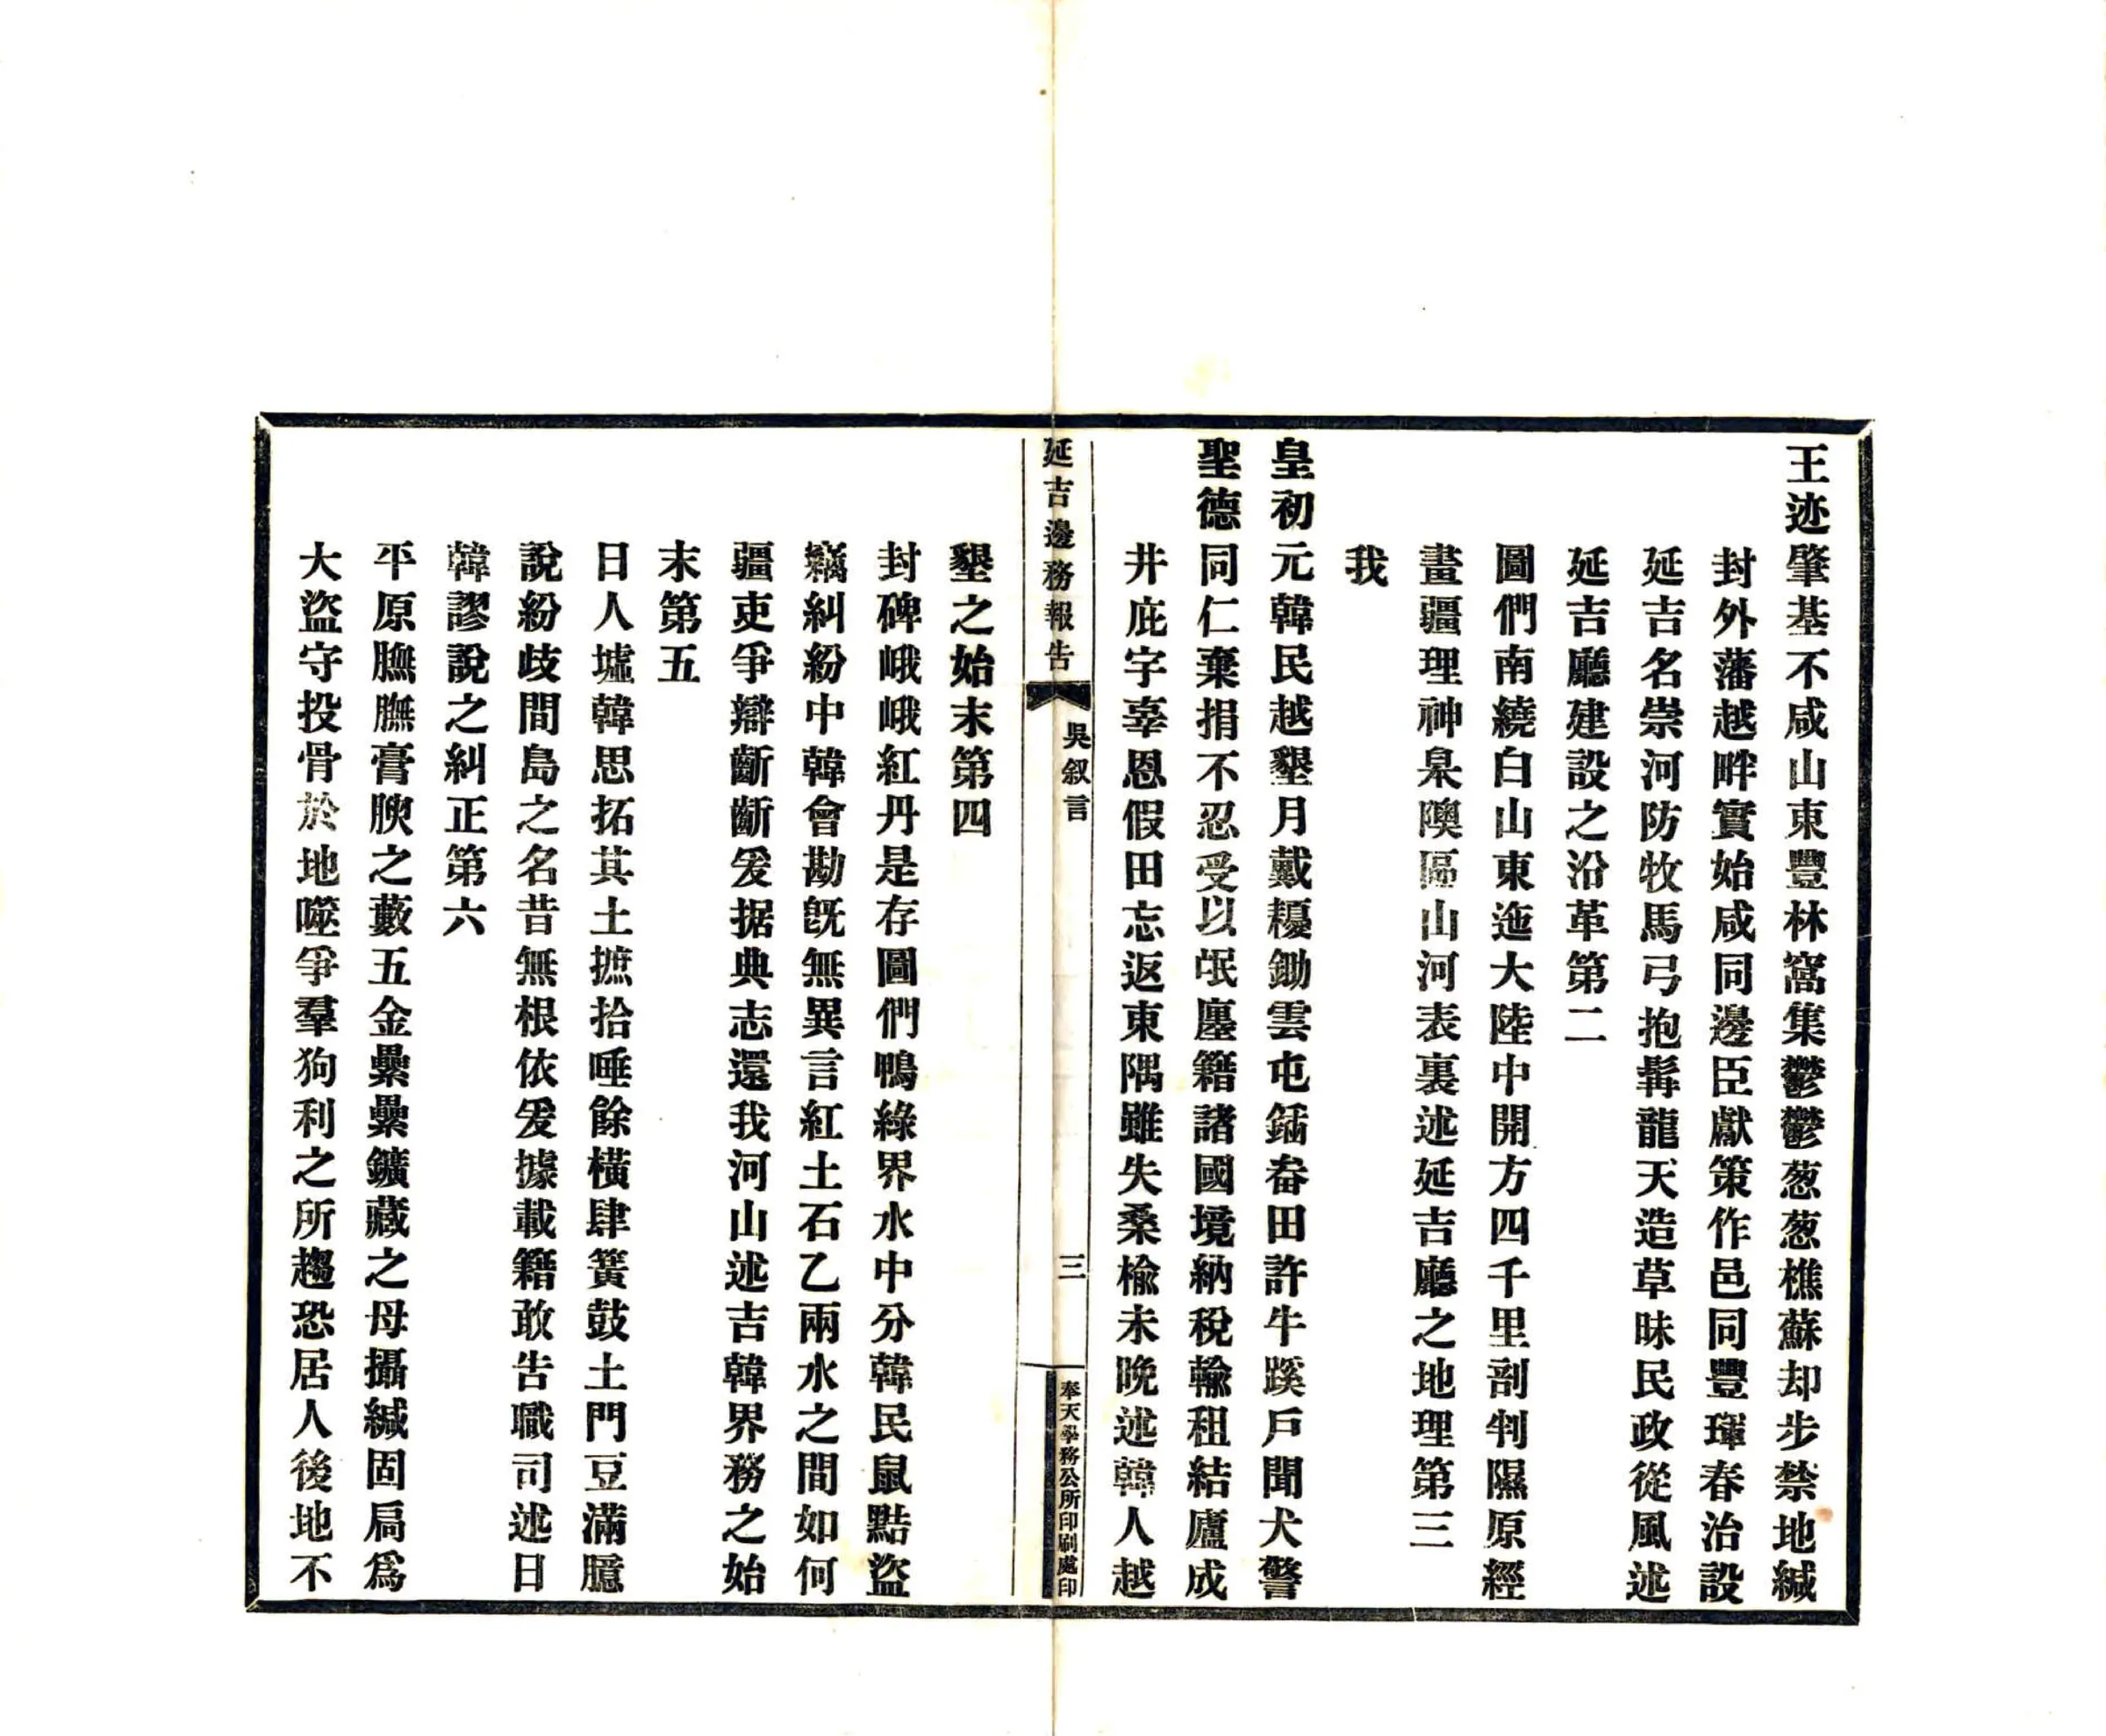 王迹肇基不咸山東豐林窩集鬱鬱葱葱樵蘇却步禁地緘
封外藩越畔實始咸同邊臣獻策作邑同豐琿春治設
延吉名崇河防牧馬弓抱髯龍天造草昧民政從風述
延吉廳建設之沿革第二
圖們南繞白山東迤大陸中開方四千里剖判隰原經
畫疆理神臬隩區山河表裏述延吉廳之地理第三
我
皇初元韓民越墾月戴耰鋤雲屯鍤畚田許牛蹊戶聞犬警
聖德同仁棄捐不忍受以氓廛籍諸國境納稅輸租結廬成
井庇宇辜恩假田忘返東隅雖失桑榆未晚述韓人越
延吉邊務報告
吳叙言
三
奉天學務公所印刷處印
墾之始末第四
封碑峨峨紅丹是存圖們鴨綠界水中分韓民鼠黠盜
竊糾紛中韓會勘旣無異言紅土石乙兩水之間如何
疆吏爭辯齗齗爰据典志還我河山述吉韓界務之始
末第五
日人墟韓思拓其土摭拾唾餘橫肆簧鼓土門豆滿臆
說紛歧間島之名昔無根依爰據載籍敢告職司述日
韓謬說之糾正第六
平原膴膴膏腴之藪五金纍纍鑛藏之母攝緘固扃爲
大盜守投骨於地噬爭羣狗利之所趨恐居人後地不